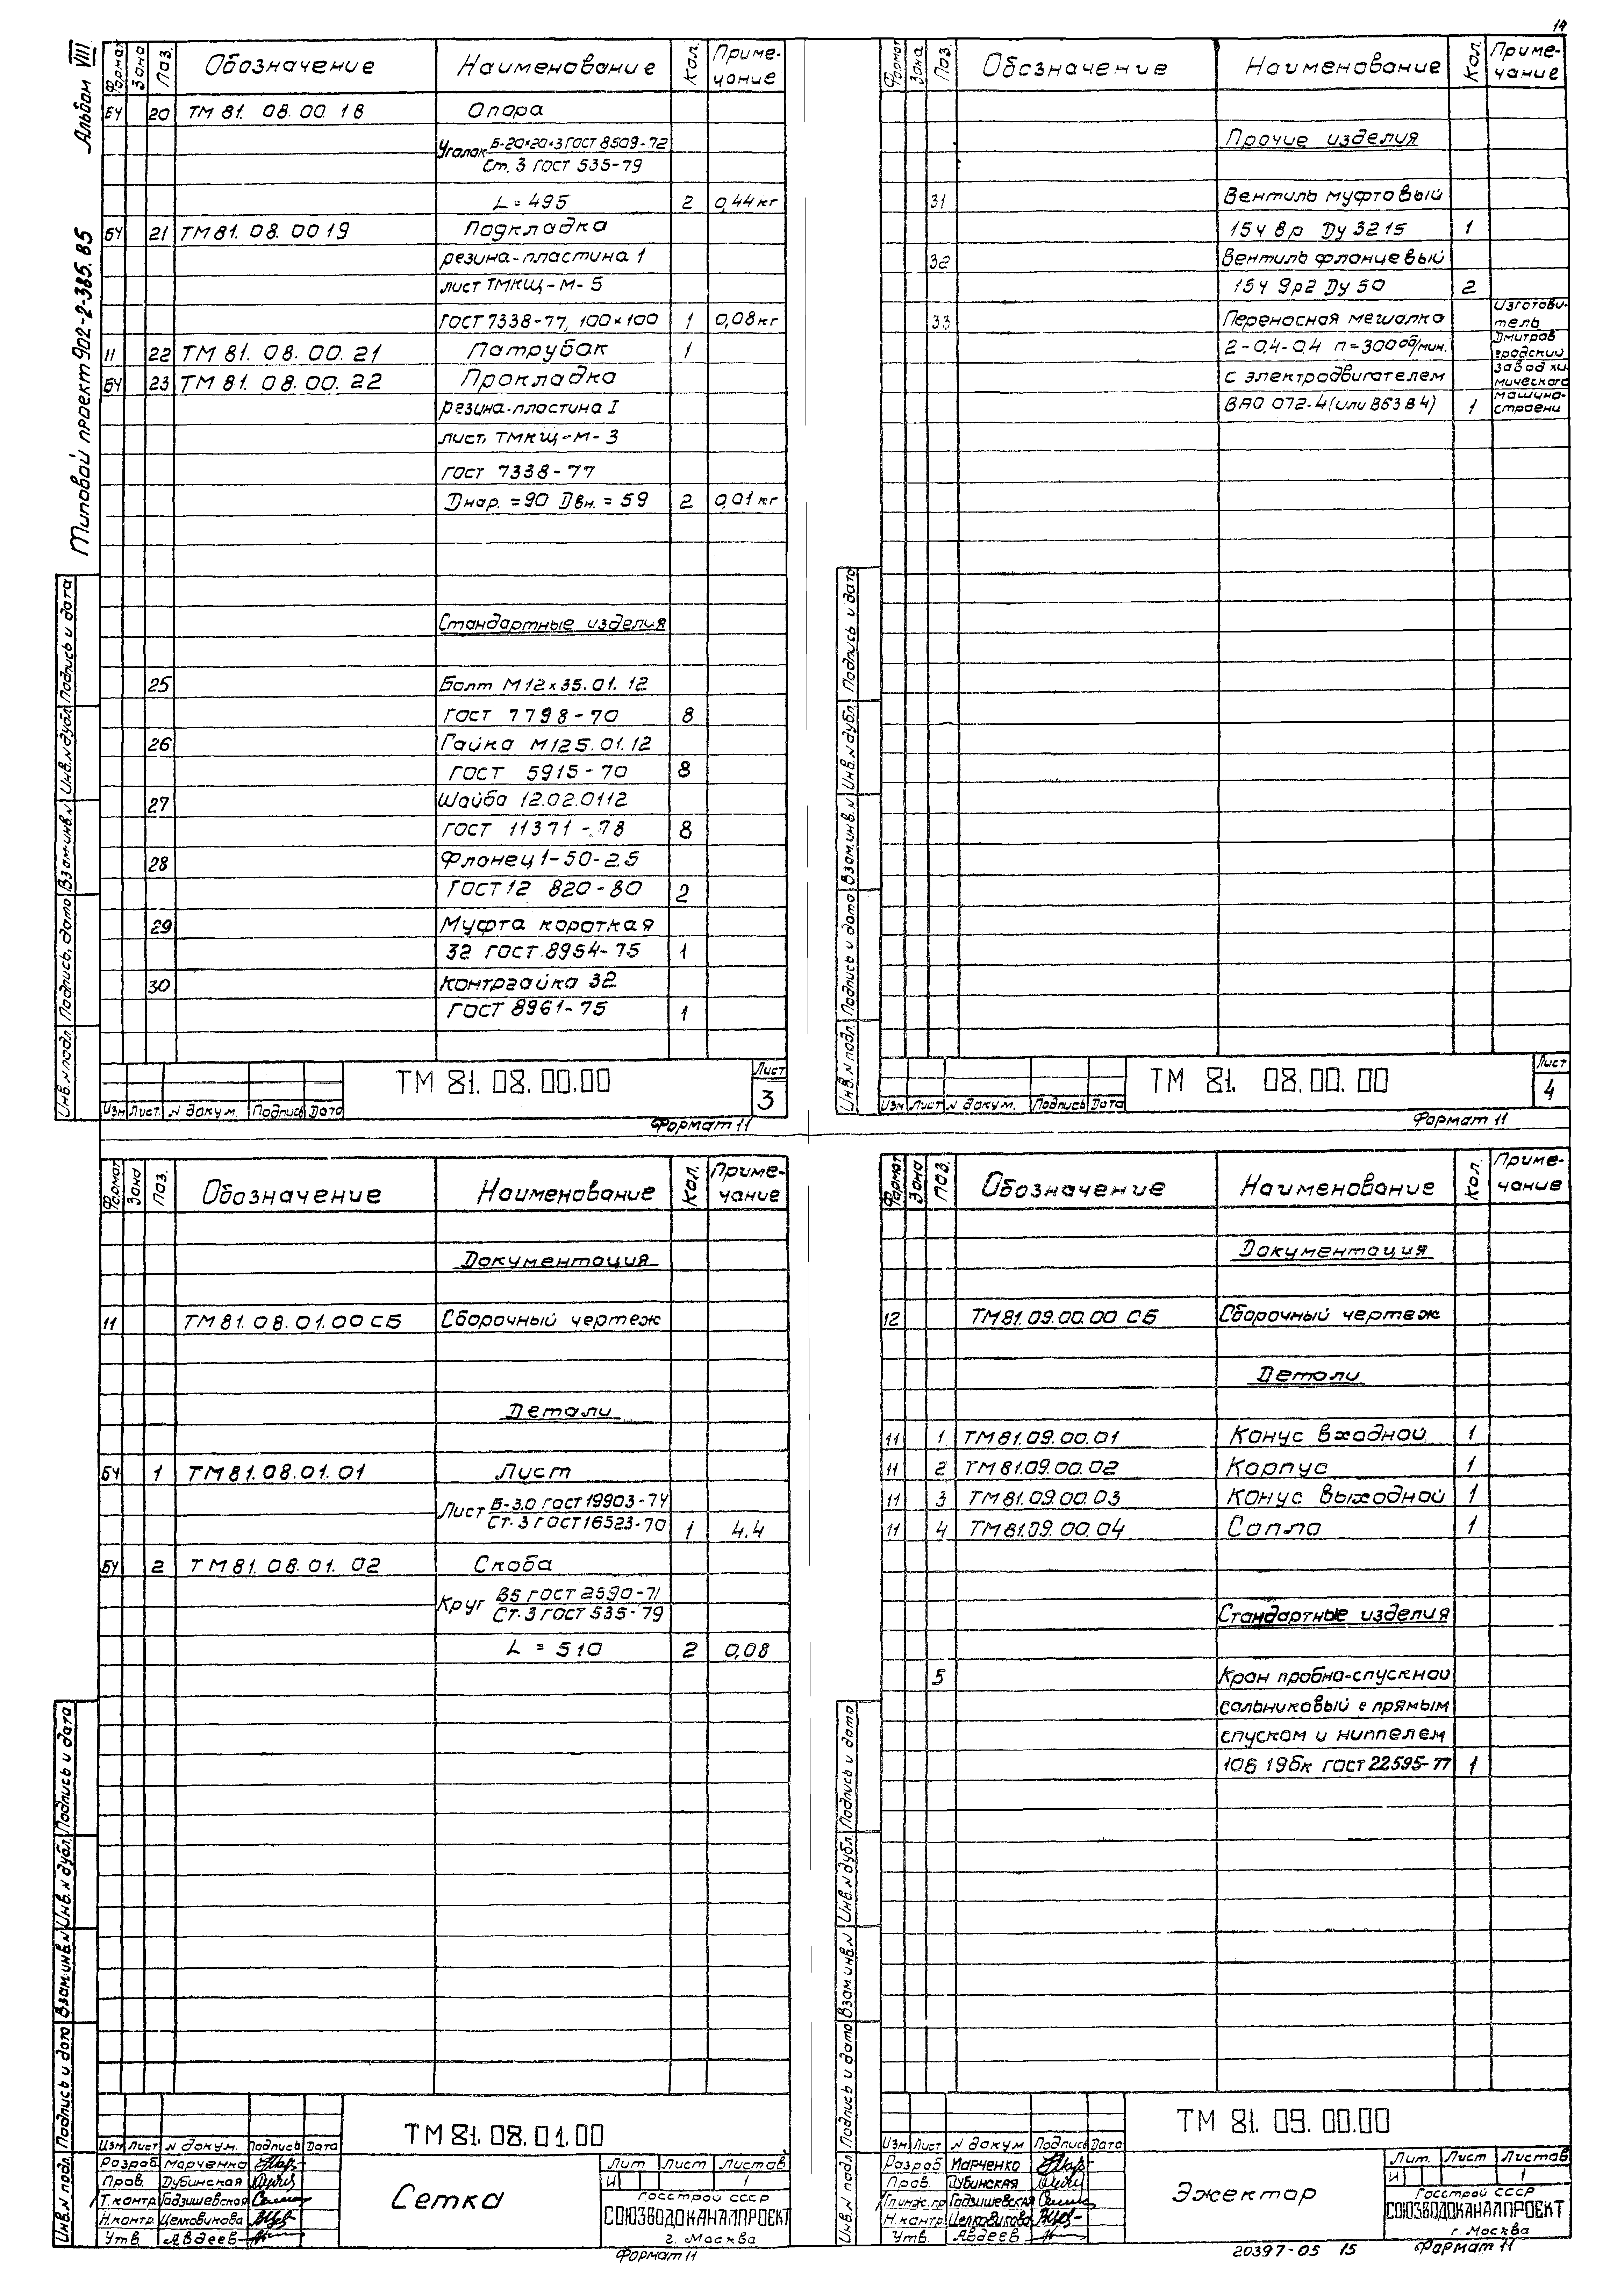 14
Альбом VIII
Типовой проект 902-2-385.85
Формат Зона Поз. Обозначение Наименование Кол. Примечание
БЧ 20 ТМ 81. 08.00.18 Опора
Уголок Б-20×20×3 ГОСТ 8509-72
Ст. 3 ГОСТ 535-79
L = 495 2 0,44кг
БЧ 21 ТМ 81. 08. 0019 Подкладка
резина-пластина 1
лист ТМКЩ-М-5
ГОСТ 7338-77, 100×100 1 0,08кг
11 22 ТМ 81. 08. 00. 21 Патрубак 1
БЧ 23 ТМ 81. 08. 00. 22 Прокладка
резина-пластина I
лист. ТМКЩ-М-3
ГОСТ 7338-77
Днар. = 90 Двн. = 59 2 0,01кг
Стандартные изделия
25 Болт М12×35.01.12
ГОСТ 7798-70 8
26 Гайка М125.01.12
ГОСТ 5915-70 8
27 Шайба 12.02.0112
ГОСТ 11371-78 8
28 Фланец 1-50-2,5
ГОСТ 12 820-80 2
29 Муфта короткая
32 ГОСТ.8954-75 1
30 Контргайка 32
ГОСТ 8961-75 1
Инв. N подл. Подпись, дата Взам.инв.N Инв.N дубл. Подпись и дата
ТМ 81. 08. 00.00 Лист
3
Изм Лист N докум. Подпись Дата
Формат 11
Формат Зона Поз. Обозначение Наименование Кол. Примечание
Прочие изделия
31 Вентиль муфтовый
15ч 8р Ду 32 15 1
32 Вентиль фланцевый
15ч 9р2 Ду 50 2
33 Переносная мешалка
2-0,4-0,4 n=300об/мин.
с электродвигателем
ВАО 072-4(или В63В4) 1
Изготови-
тель
Дмитров
градский
завод хи
мического
машино-
строени
Инв. N подл. Подпись и дата Взам.инв.N Инв.N дубл. Подпись и дата
ТМ 81. 08.00. 00 Лист
4
Изм Лист N докум. Подпись Дата
Формат 11
Формат Зона Поз. Обозначение Наименование Кол. Примечание
Документация
11 ТМ 81. 08. 01. 00 СБ Сборочный чертеж
Детали
БЧ 1 ТМ 81. 08. 01. 01 Лист
Лист Б-3.0 ГОСТ 19903-74
Ст. 3 ГОСТ 16523-70 1 4.4
БЧ 2 ТМ 81. 08. 01. 02 Скоба
Круг В5 ГОСТ 2590-71
Ст. 3 ГОСТ 535-79
L = 510 2 0,08
Инв.N подл. Подпись и дата Взам.инв.N Инв.N дубл. Подпись и дата
ТМ 81. 08. 01. 00
Изм Лист N докум. Подпись Дата
Разраб. Марченко
Пров. Дубинская
Т.контр. Гадзишевская
Н.контр. Целковикова
Утв. Авдеев
Сетка
Лит Лист Листов
И 1
Госстрой СССР
СОЮЗВОДОКАНАЛПРОЕКТ
г. Москва
Формат 11
Формат Зона Поз. Обозначение Наименование Кол. Примечание
Документация
12 ТМ 81.09.00.00 СБ Сборочный чертеж
Детали
11 1 ТМ 81.09.00.01 Конус входной 1
11 2 ТМ 81.09.00.02 Корпус 1
11 3 ТМ 81.09.00.03 Конус выходной 1
11 4 ТМ 81.09.00.04 Сопло 1
Стандартные изделия
5 Кран пробно-спускной
сальниковый с прямым
спуском и ниппелем
10Б 19бк ГОСТ 22595-77 1
Инв.N подл. Подпись и дата Взам.инв.N Инв.N дубл. Подпись и дата
ТМ 81. 09. 00.00
Изм Лист N докум Подпись Дата
Разраб Марченко
Пров. Дубинская
Гл.инж.пр Гадзишевская
Н.контр. Целковикова
Утв. Авдеев
Эжектор
Лит. Лист Листов
И 1
Госстрой СССР
СОЮЗВОДОКАНАЛПРОЕКТ
г. Москва
20397-05 15 Формат 11